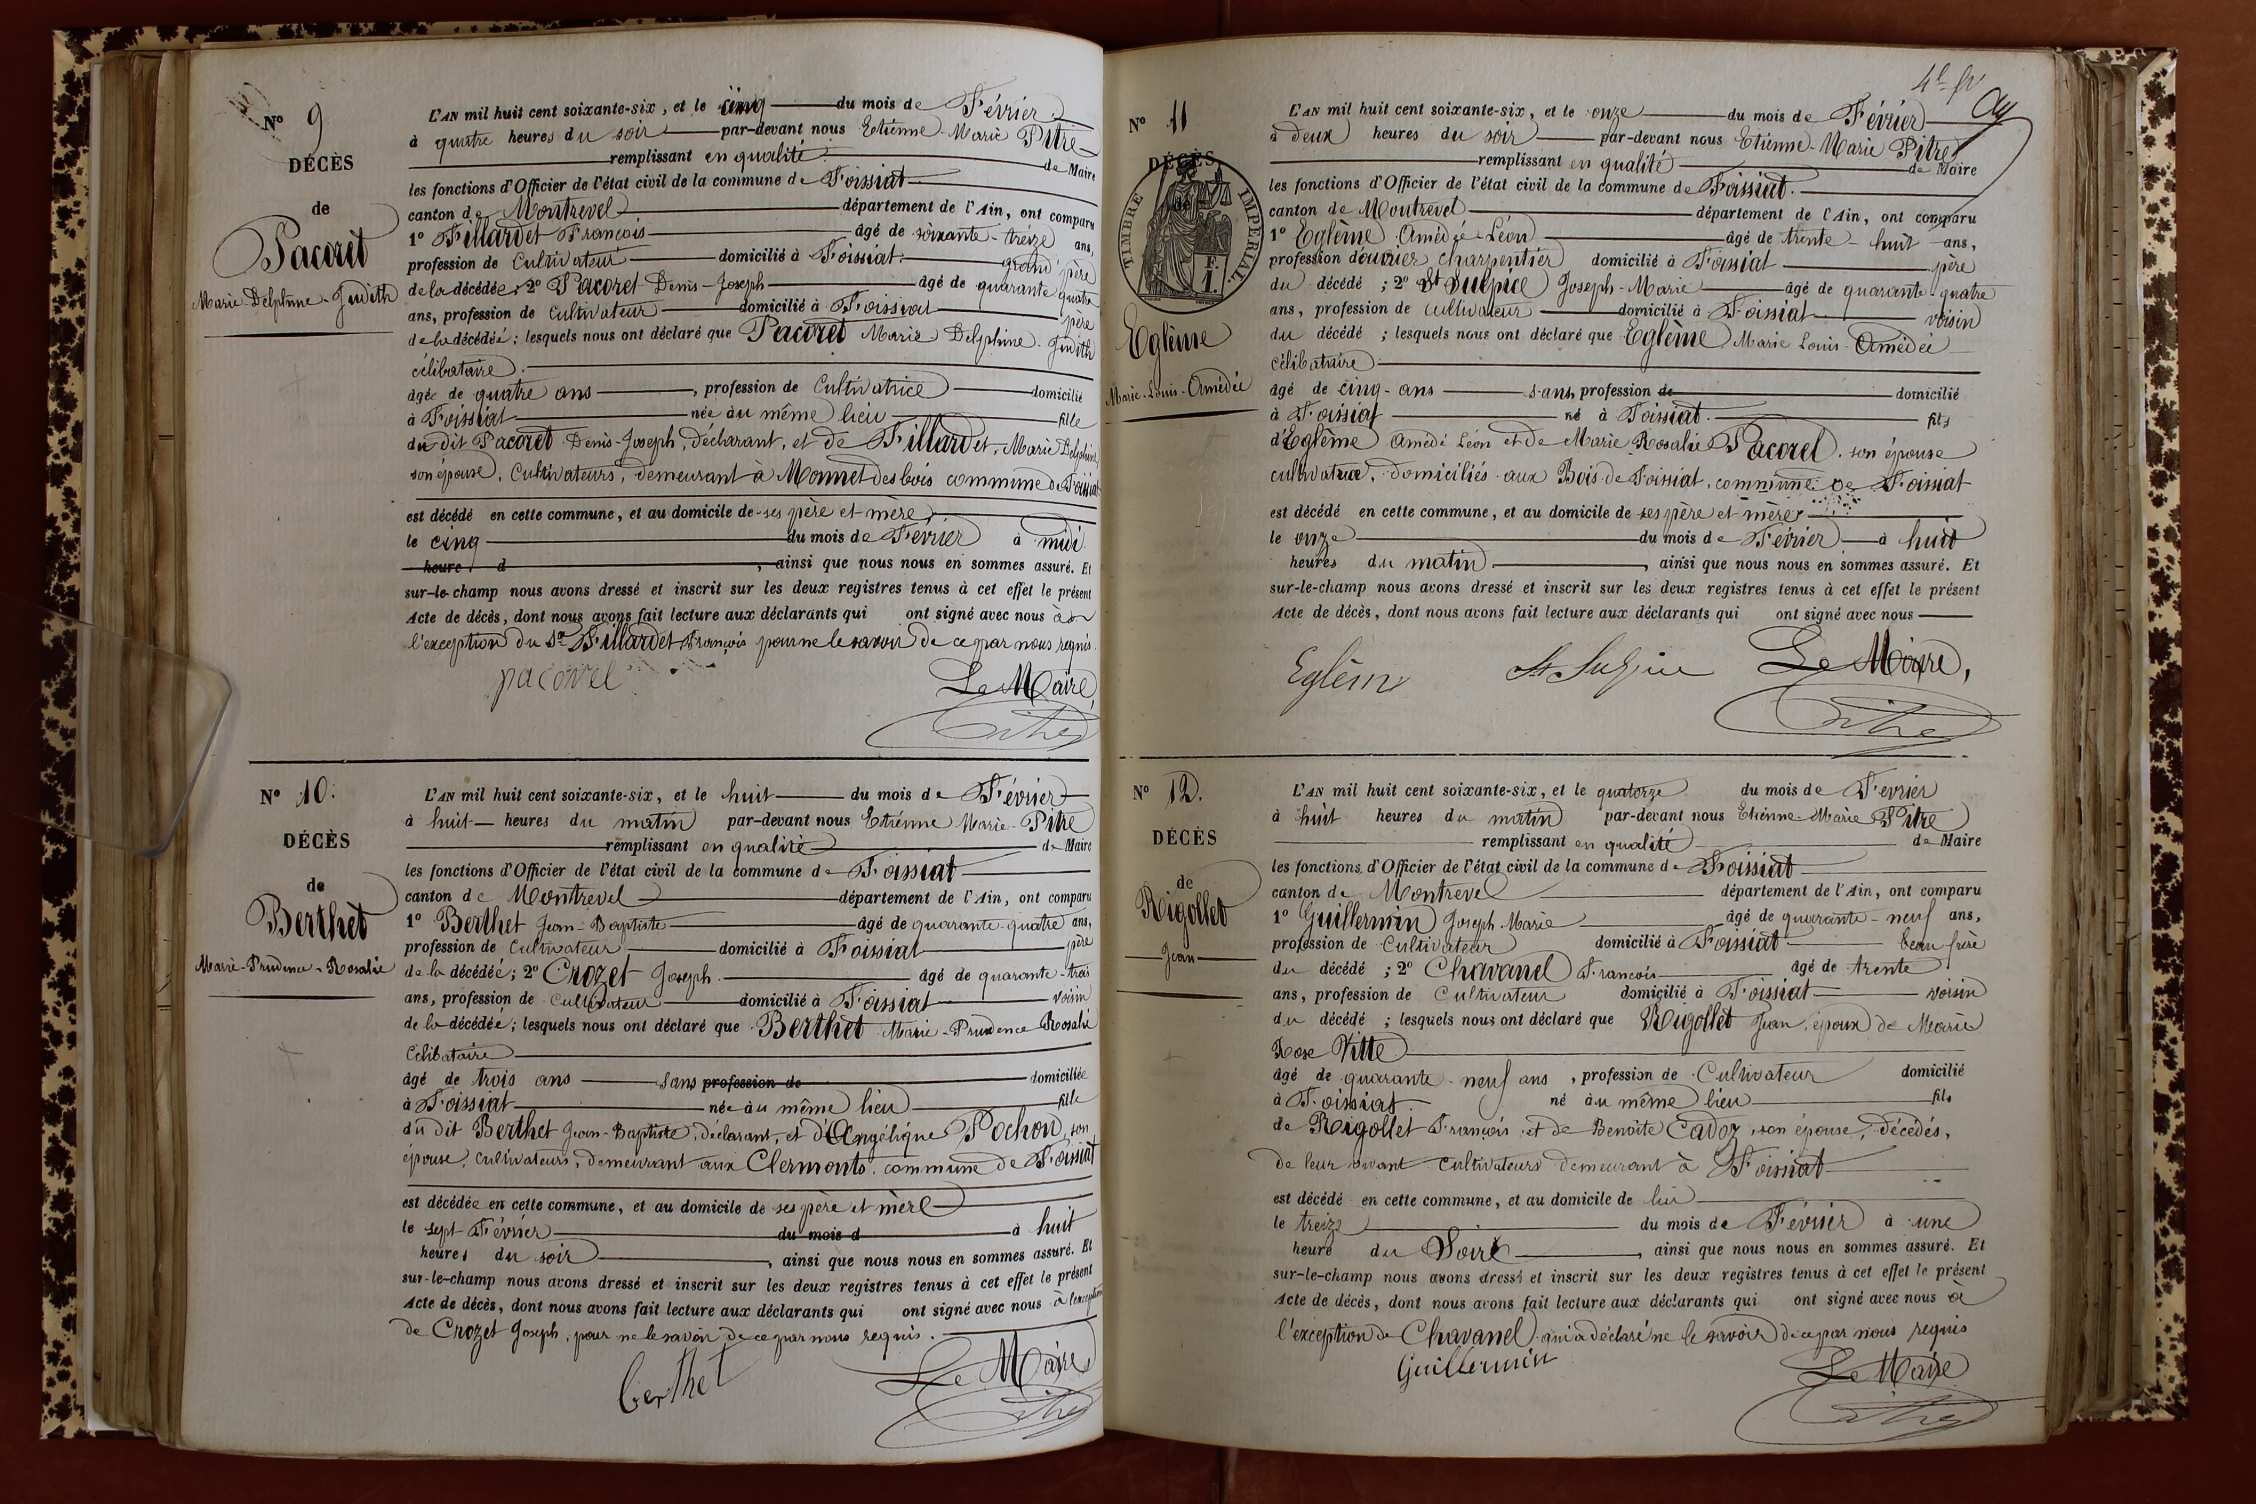 N° 9
DÉCÈS
de
Pacoret
Marie Delphine-Judith
L'AN mil huit cent soixante-six, et le cinq du mois de Février
à quatre heures du soir par-devant nous Etienne-Marie Pitre
remplissant en qualité de Maire
les fonctions d'Officier de l'état civil de la commune de Foissiat
canton de Montrevel département de l'Ain, ont comparu
1° Fillardet François âgé de soixante-treize ans,
profession de Cultivateur domicilié à Foissiat grand père
de la décédée; 2° Pacoret Denis-Joseph âgé de quarante quatre
ans, profession de Cultivateur domicilié à Foissiat père
de la décédée; lesquels nous ont déclaré que Pacoret Marie Delphine-Judith
célibataire.
âgée de quatre ans, profession de Cultivatrice domicilié
à Foissiat née au même lieu fille
du dit Pacoret Denis-Joseph, déclarant, et de Fillardet, Marie Delphine,
son épouse, Cultivateurs, demeurant à Monnet des bois commune de Foissiat
est décédé en cette commune, et au domicile de ses père et mère,
le cinq du mois de Février à midi
heure d, ainsi que nous nous en sommes assuré. Et
sur-le-champ nous avons dressé et inscrit sur les deux registres tenus à cet effet le présent
Acte de décès, dont nous avons fait lecture aux déclarants qui ont signé avec nous à
l'exception du Sr Fillardet François pour ne le savoir de ce par nous requis.
pacoret
Le Maire,
Pitre
N° 10.
DÉCÈS
de
Berthet
Marie-Prudence-Rosalie
L'AN mil huit cent soixante-six, et le huit du mois de Février
à huit heures du matin par-devant nous Etienne Marie-Pitre
remplissant en qualité de Maire
les fonctions d'Officier de l'état civil de la commune de Foissiat
canton de Montrevel département de l'Ain, ont comparu
1° Berthet Jean-Baptiste âgé de quarante-quatre ans,
profession de Cultivateur domicilié à Foissiat père
de la décédée; 2° Crozet Joseph âgé de quarante-trois
ans, profession de Cultivateur domicilié à Foissiat voisin
de la décédée; lesquels nous ont déclaré que Berthet Marie-Prudence Rosalie
célibataire
âgé de trois ans sans profession de domiciliée
à Foissiat née au même lieu fille
du dit Berthet Jean-Baptiste, déclarant, et d'Angélique Pochon, son
épouse, cultivateurs, demeurant aux Clermonts, commune de Foissiat
est décédée en cette commune, et au domicile de ses père et mère
le sept Février du mois d à huit
heures du soir, ainsi que nous nous en sommes assuré. Et
sur-le-champ nous avons dressé et inscrit sur les deux registres tenus à cet effet le présent
Acte de décès, dont nous avons fait lecture aux déclarants qui ont signé avec nous à l'exception
de Crozet Joseph, pour ne le savoir de ce par nous requis.
berthet
Le Maire
Pitre
N° 11
DÉCÈS
de
TIMBRE IMPÉRIAL
F.
1.
Eglème
Marie-Louis-Amédée
L'AN mil huit cent soixante-six, et le onze du mois de Février
à deux heures du soir par-devant nous Etienne-Marie Pitre
remplissant en qualité de Maire
les fonctions d'Officier de l'état civil de la commune de Foissiat.
canton de Montrevel département de l'Ain, ont comparu
1° Eglème Amédée-Léon âgé de trente-huit ans,
profession d'ouvrier charpentier domicilié à Foissiat père
du décédé; 2° St Sulpice Joseph-Marie âgé de quarante quatre
ans, profession de cultivateur domicilié à Foissiat voisin
du décédé; lesquels nous ont déclaré que Eglème Marie Louis Amédée
célibataire
âgé de cinq-ans sans profession de domicilié
à Foissiat né à Foissiat. fils
d'Eglème Amédé Léon et de Marie Rosalie Pacoret, son épouse
cultivatrice, domiciliés aux Bois de Foissiat, commune de Foissiat
est décédé en cette commune, et au domicile de ses père et mère
le onze du mois de Février à huit
heures du matin, ainsi que nous nous en sommes assuré. Et
sur-le-champ nous avons dressé et inscrit sur les deux registres tenus à cet effet le présent
Acte de décès, dont nous avons fait lecture aux déclarants qui ont signé avec nous
Eglème
St Sulpice
Le Maire,
Pitre
N° 12.
DÉCÈS
de
Rigollet
Jean
L'AN mil huit cent soixante-six, et le quatorze du mois de Février
à huit heures du matin par-devant nous Etienne-Marie Pitre
remplissant en qualité de Maire
les fonctions d'Officier de l'état civil de la commune de Foissiat
canton de Montrevel département de l'Ain, ont comparu
1° Guillermin Joseph Marie âgé de quarante-neuf ans,
profession de Cultivateur domicilié à Foissiat beau frère
du décédé; 2° Chavanel François âgé de trente
ans, profession de Cultivateur domicilié à Foissiat voisin
du décédé; lesquels nous ont déclaré que Rigollet Jean, époux de Marie
Rose Vitte
âgé de quarante-neuf ans, profession de Cultivateur domicilié
à Foissiat. né au même lieu fils
de Rigollet François et de Benoite Cadoz, son épouse, décédés,
de leur vivant cultivateurs demeurant à Foissiat
est décédé en cette commune, et au domicile de lui
le treize du mois de Février à une
heure du Soir, ainsi que nous nous en sommes assuré. Et
sur-le-champ nous avons dressé et inscrit sur les deux registres tenus à cet effet le présent
Acte de décès, dont nous avons fait lecture aux déclarants qui ont signé avec nous à
l'exception de Chavanel qui a déclaré ne le savoir de ce par nous requis
Guillermin
Le Maire
Pitre